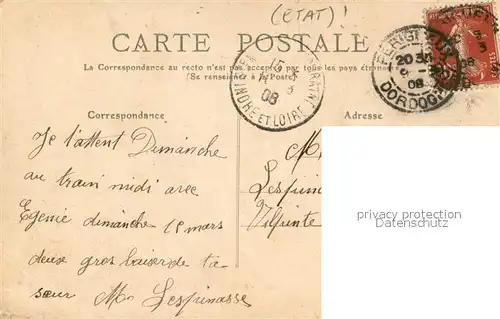 (ETAT)!
CARTE POSTALE
La Correspondance au recto n'est pas acceptée par tous les pays étrangers
(Se renseigner à la Poste)
15
3
08
INDRE ET LOIRE
PERIGUEUX
20
08
DORDOGNE
Correspondance
Adresse
Je l'attent Dimanche
au train midi avec
Egenie dimanche 15 mars
deux gros baiser de ta
sœur Mm Lespinasse
M
Lespin
privacy protection
Datenschutz